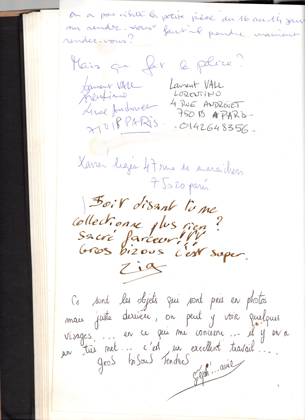 on a pas visité la petite pièce du 16 avril sur
un rendez-vous faut-il prendre vraiment
rendez-vous?
Mais que fait la police?
Laurent VALL
Laurent VALL
LORENTINO
4 RUE ANDROUET
75018 PARIS
75018 PARIS
0142648356
Xavier 47 rue de maraîchers
75020 paris
Soit disant tu me
collectionne plus rien?
Sacré farceur!!!
Gros bizous c'est super.
Zig
Ce sont les objets qui sont pris en photos
mais juste derrière, on peut y voir quelques
visages.... en ce qui me concerne... il y en a
un très net... c'est un excellent travail....
gros bisous Tendres